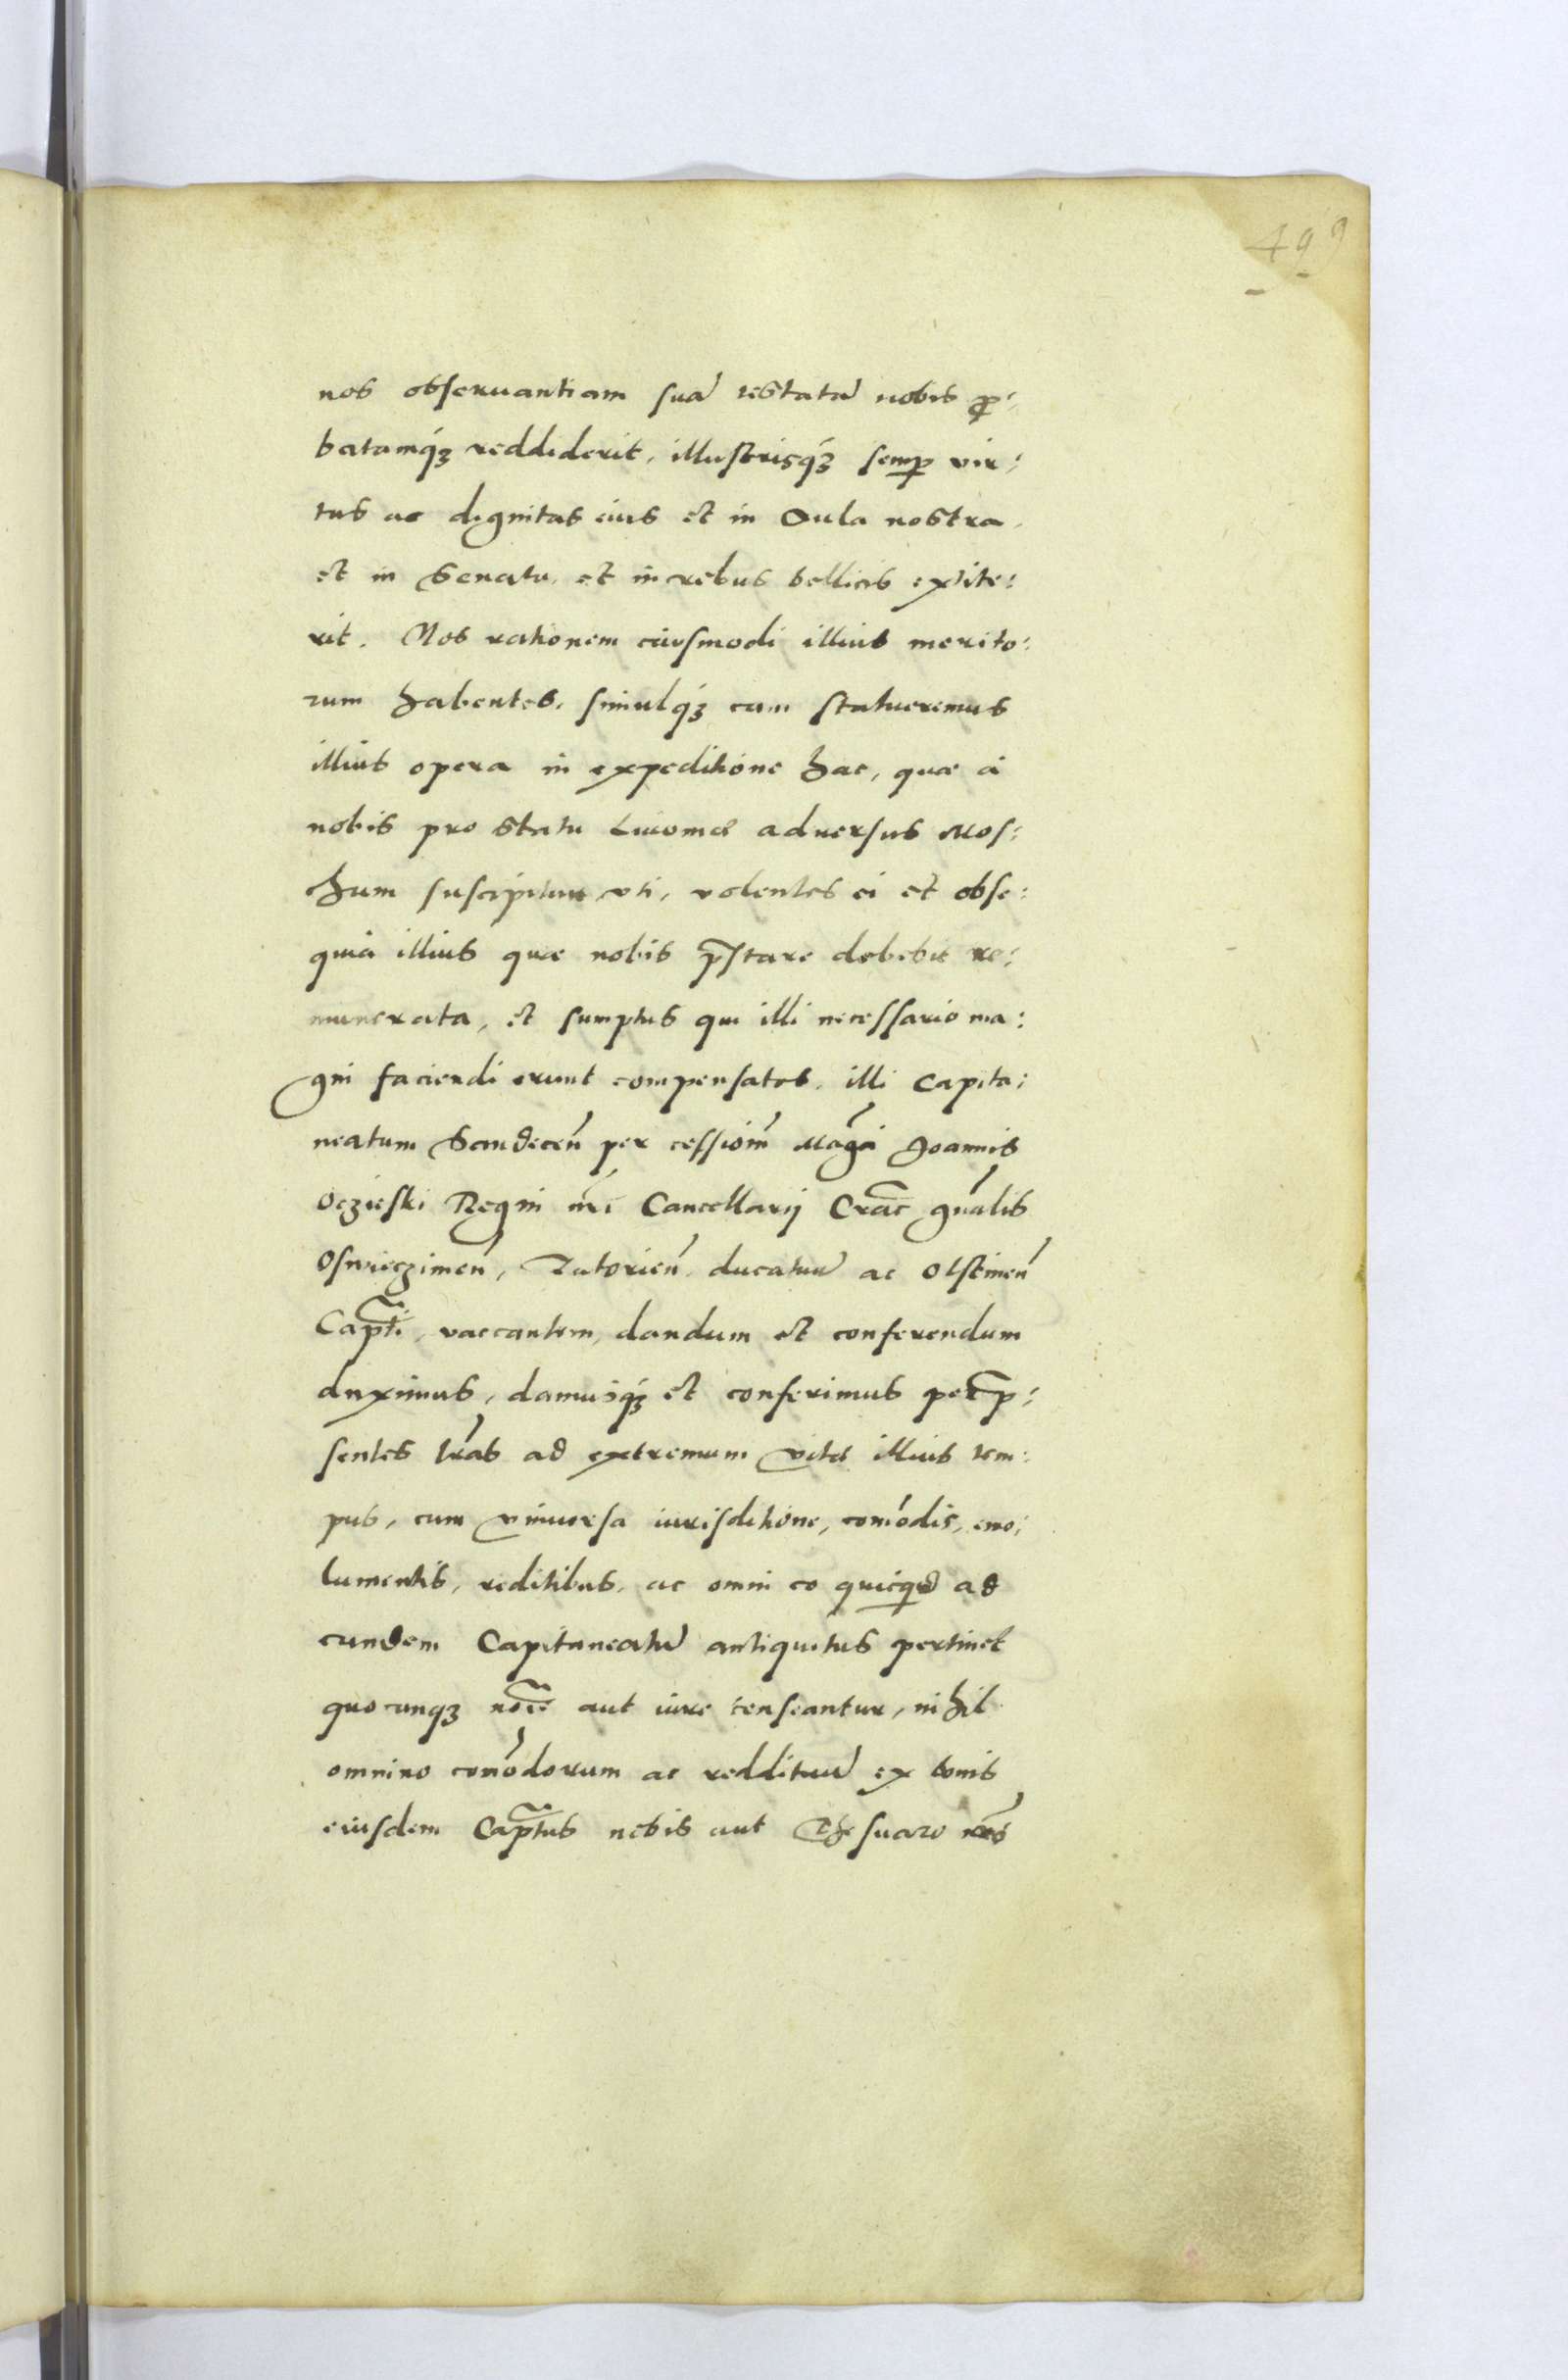 499
nos obseruantiam suā testatā nobis ꝓ:
batamq́ꝫ reddiderit, illustrisq́ꝫ semꝑ vir:
tus ac dignitas eius et in Aula nostra
et in Senatu, et in rebus bellicis extite:
rit. Nos rationem eiusmodi illius merito:
rum habentes, simulq́ꝫ cum statueremus
illius opera in expeditione hac, quæ à
nobis pro statu Liuoniæ aduersus Mos:
chum suscipitur vti, volentes ei et obse:
quia illius quæ nobis p̄stare debebit re:
munerata, et sumptus qui illi necessario ma:
gni faciendi erunt compensatos, illi Capita:
neatum Sandecen̄ per cessionē Magci Joannis
Oczieski Regni nr̄i Cancellarij Crac̄ gn̄alis
Oswieczimen̄, Zatorien̄ ducatuū ac Olstinen̄
Capti, vaccantem, dandum et conferendum
duximus, damusq́ꝫ et conferimus per p̄:
sentes lr̄as ad extremum vitæ illius tem:
pus, cum vniuersa iurisditione, com̄odis, emo:
lumentis, reditibus, ac omni eo quicqͥd ad
eundem Capitaneatū antiquitus pertinet
quocunqꝫ noīe aut iure censeantur, nihil
omnino com̄odorum ac reddituū ex bonis
eiusdem Captus nobis aut Thesuaro nr̄o